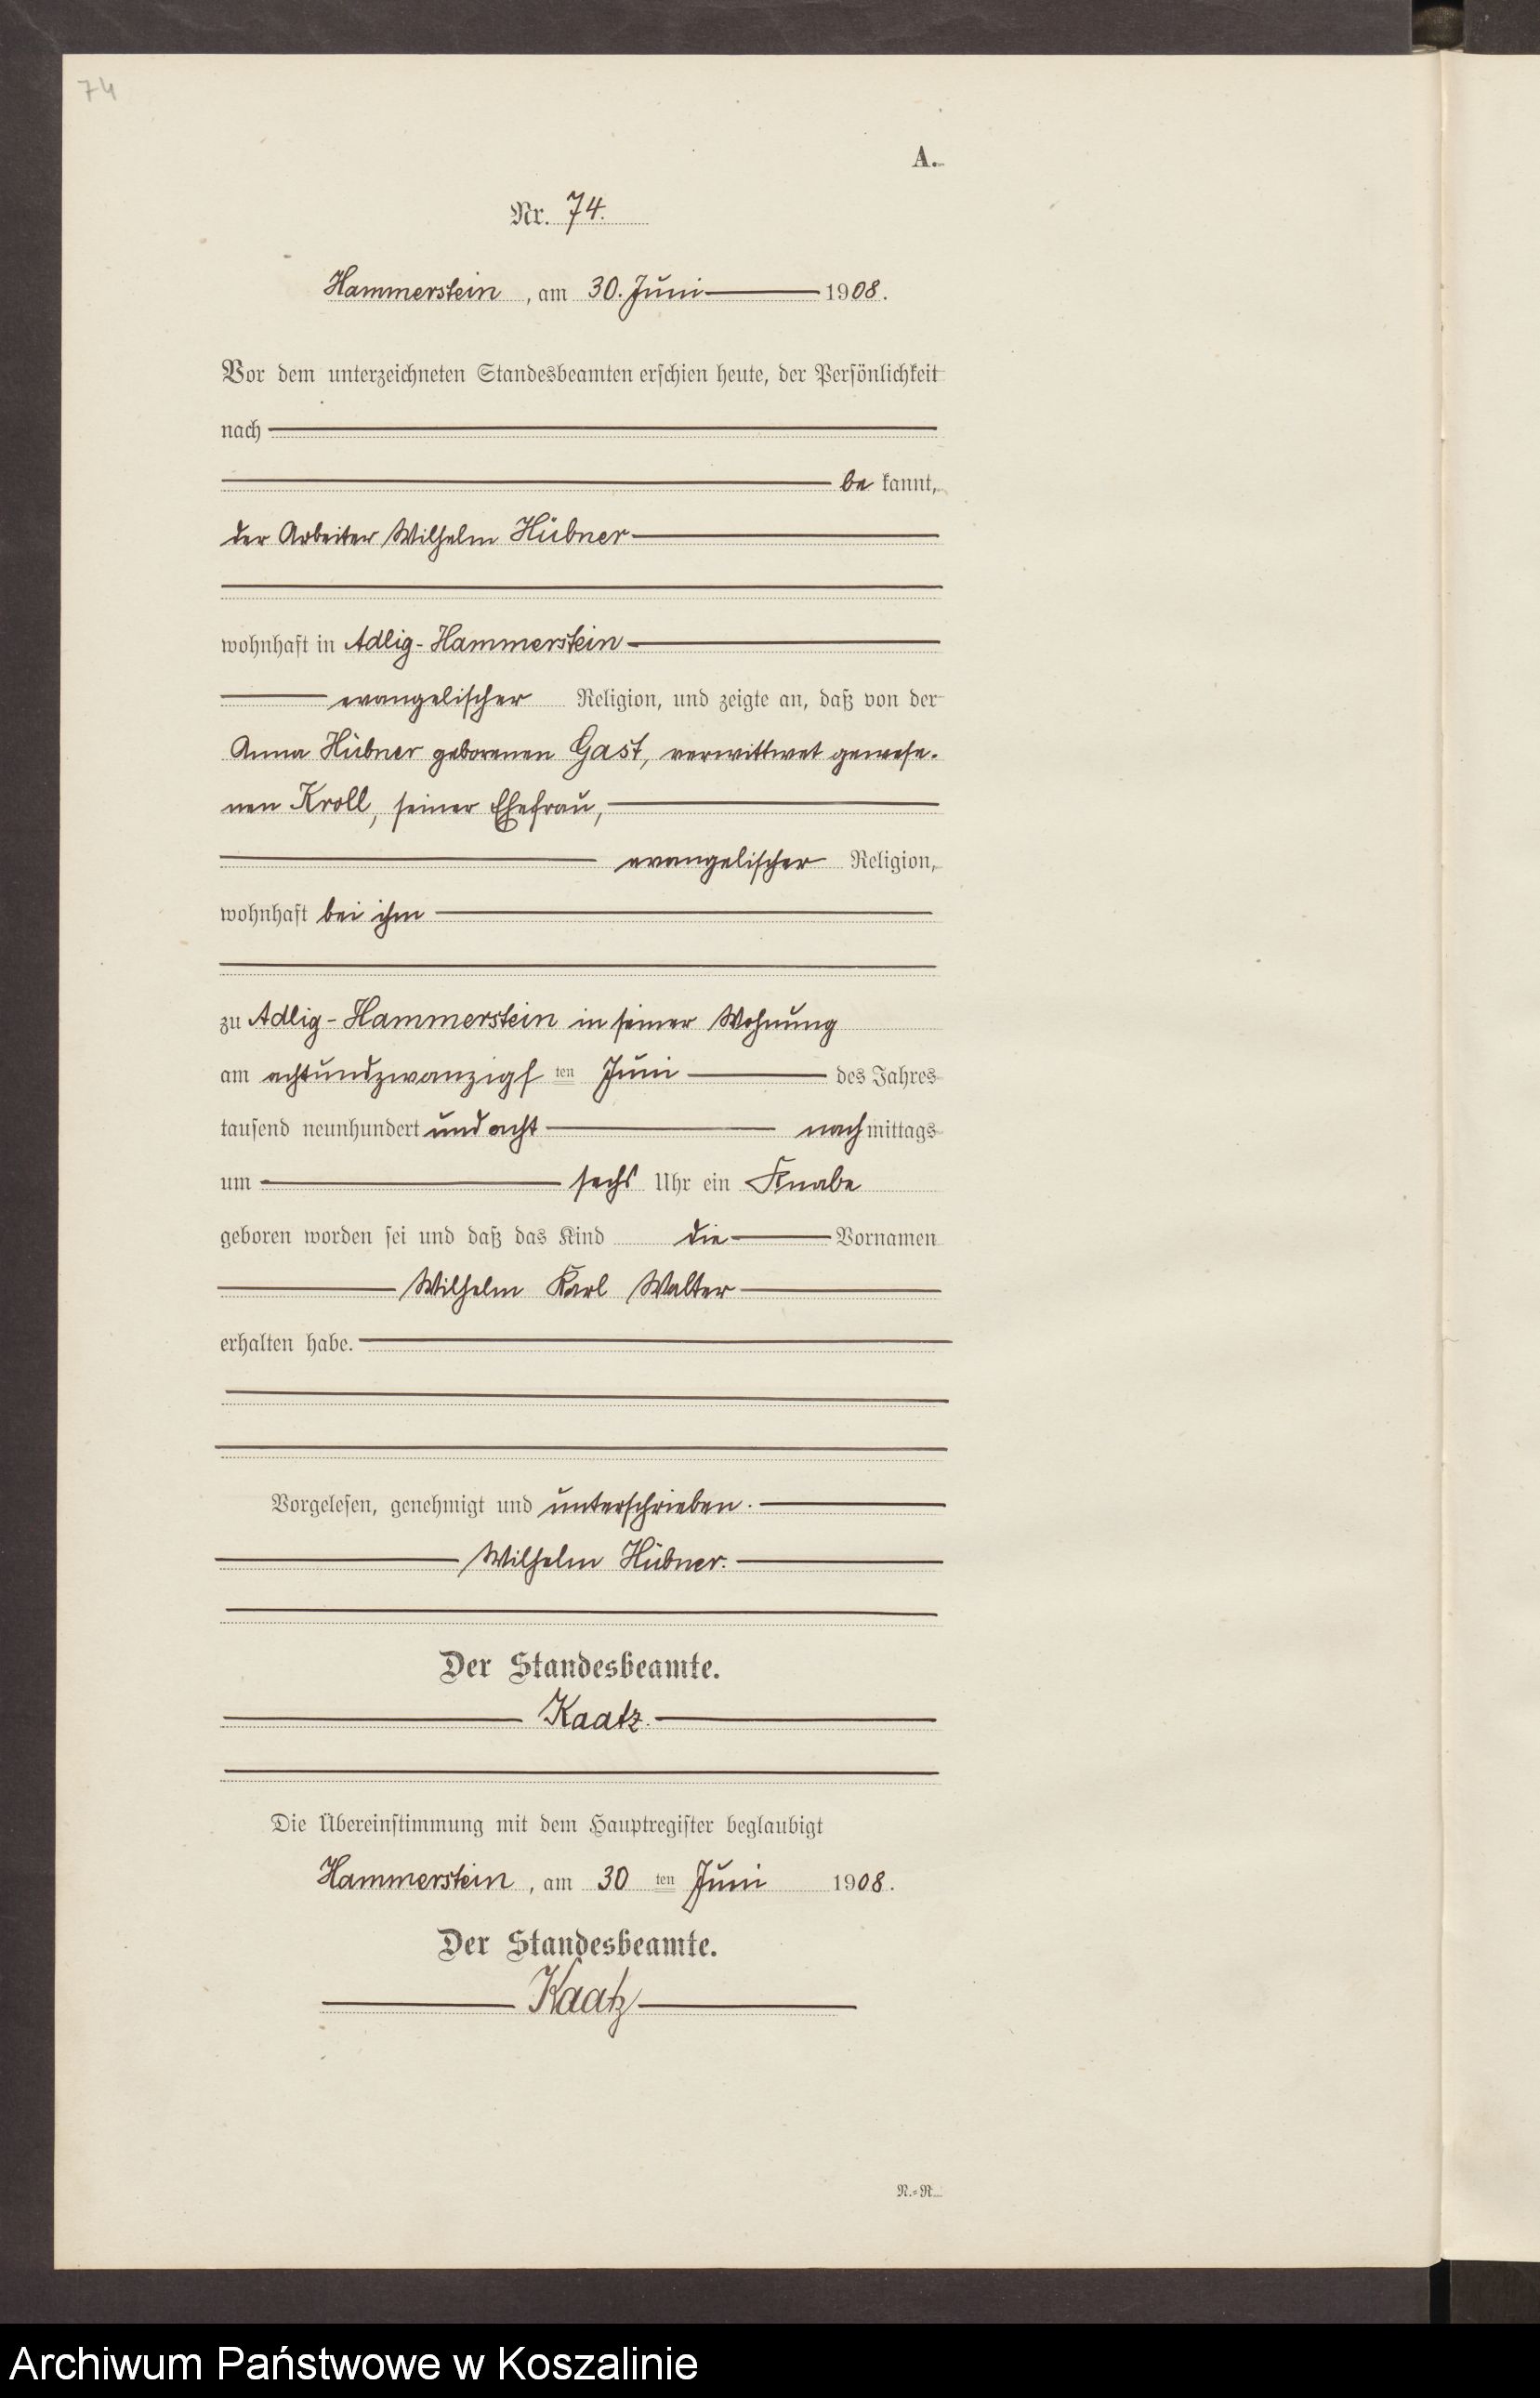 74
A.
Nr. 74.
Hammerstein, am 30. Juni 1908.
Vor dem unterzeichneten Standesbeamten erschien heute, der Persönlichkeit
nach
be kannt,
der Arbeiter Wilhelm Hübner
wohnhaft in Adlig-Hammerstein
evangelischer Religion, und zeigte an, daß von der
Anna Hübner geborenen Gast, verwittwet gewese-
nen Kroll, seiner Ehefrau,
evangelischer Religion,
wohnhaft bei ihm
zu Adlig-Hammerstein in seiner Wohnung
am achtundzwanzigs ten Juni des Jahres
tausend neunhundert und acht nachmittags
um sechs Uhr ein Knabe
geboren worden sei und daß das Kind die Vornamen
Wilhelm Karl Walter
erhalten habe.
Vorgelesen, genehmigt und unterschrieben.
Wilhelm Hübner.
Der Standesbeamte.
Kaatz.
Die Übereinstimmung mit dem Hauptregister beglaubigt
Hammerstein, am 30 ten Juni 1908.
Der Standesbeamte.
Kaatz
N.-R.
Archiwum Państwowe w Koszalinie